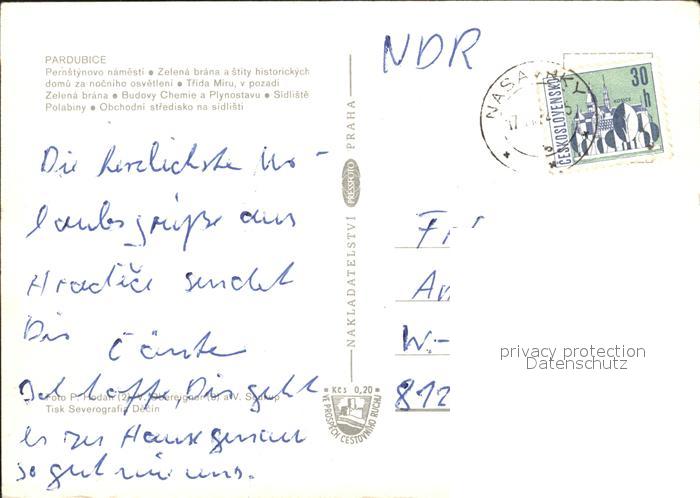 PARDUBICE
Pernštýnovo náměstí ● Zelená brána a štíty historických
domů za nočního osvětlení ● Třída Míru, v pozadí
Zelená brána ● Budovy Chemie a Plynostavu ● Sídliště
Polabiny ● Obchodní středisko na sídlišti
NDR
NASAVRKY
17
ČESKOSLOVENSKO
30 h
KOŠICE
NAKLADATELSTVÍ PRESSFOTO PRAHA
Die herzlichste Ur-
laubsgrüße aus
Hradiče sendet
Dir
Tante
Ich hoffe, Dir geht
es zu Hause genau
so gut wie uns.
Foto P.
Tisk Severografia Děčín
Kčs 0,20
VE PROSPĚCH CESTOVNÍHO RUCHU
Fr
An
W-
812
privacy protection
Datenschutz